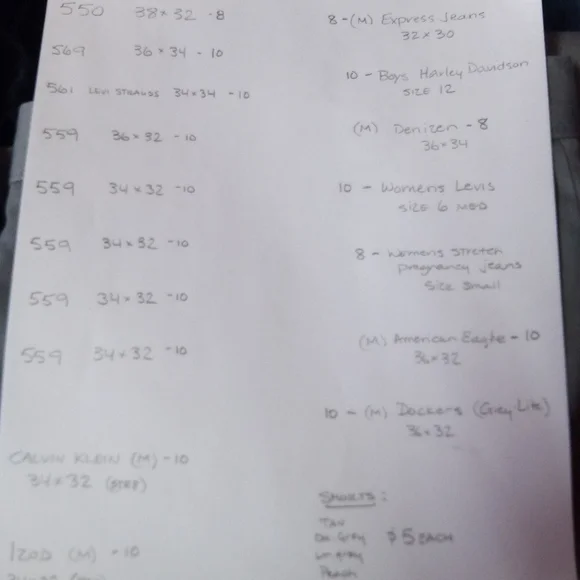 550 38×32 - 8
569 36×34 - 10
561 LEVI STRAUSS 34×34 - 10
559 36×32 - 10
559 34×32 - 10
559 34×32 - 10
559 34×32 - 10
559 34×32 - 10
CALVIN KLEIN (M) - 10
34×32
IZOD (M) - 10
8 - (M) Express Jeans
32×30
10 - Boys Harley Davidson
SIZE 12
(M) Denizen - 8
36×34
10 - Womens Levis
SIZE 6 MED
8 - Womens Stretch
pregnancy jeans
Size small
(M) American Eagle - 10
36×32
10 - (M) Dockers (Grey Lite)
36×32
SHORTS:
TAN
DK Grey $5 EACH
LT Grey
Peach